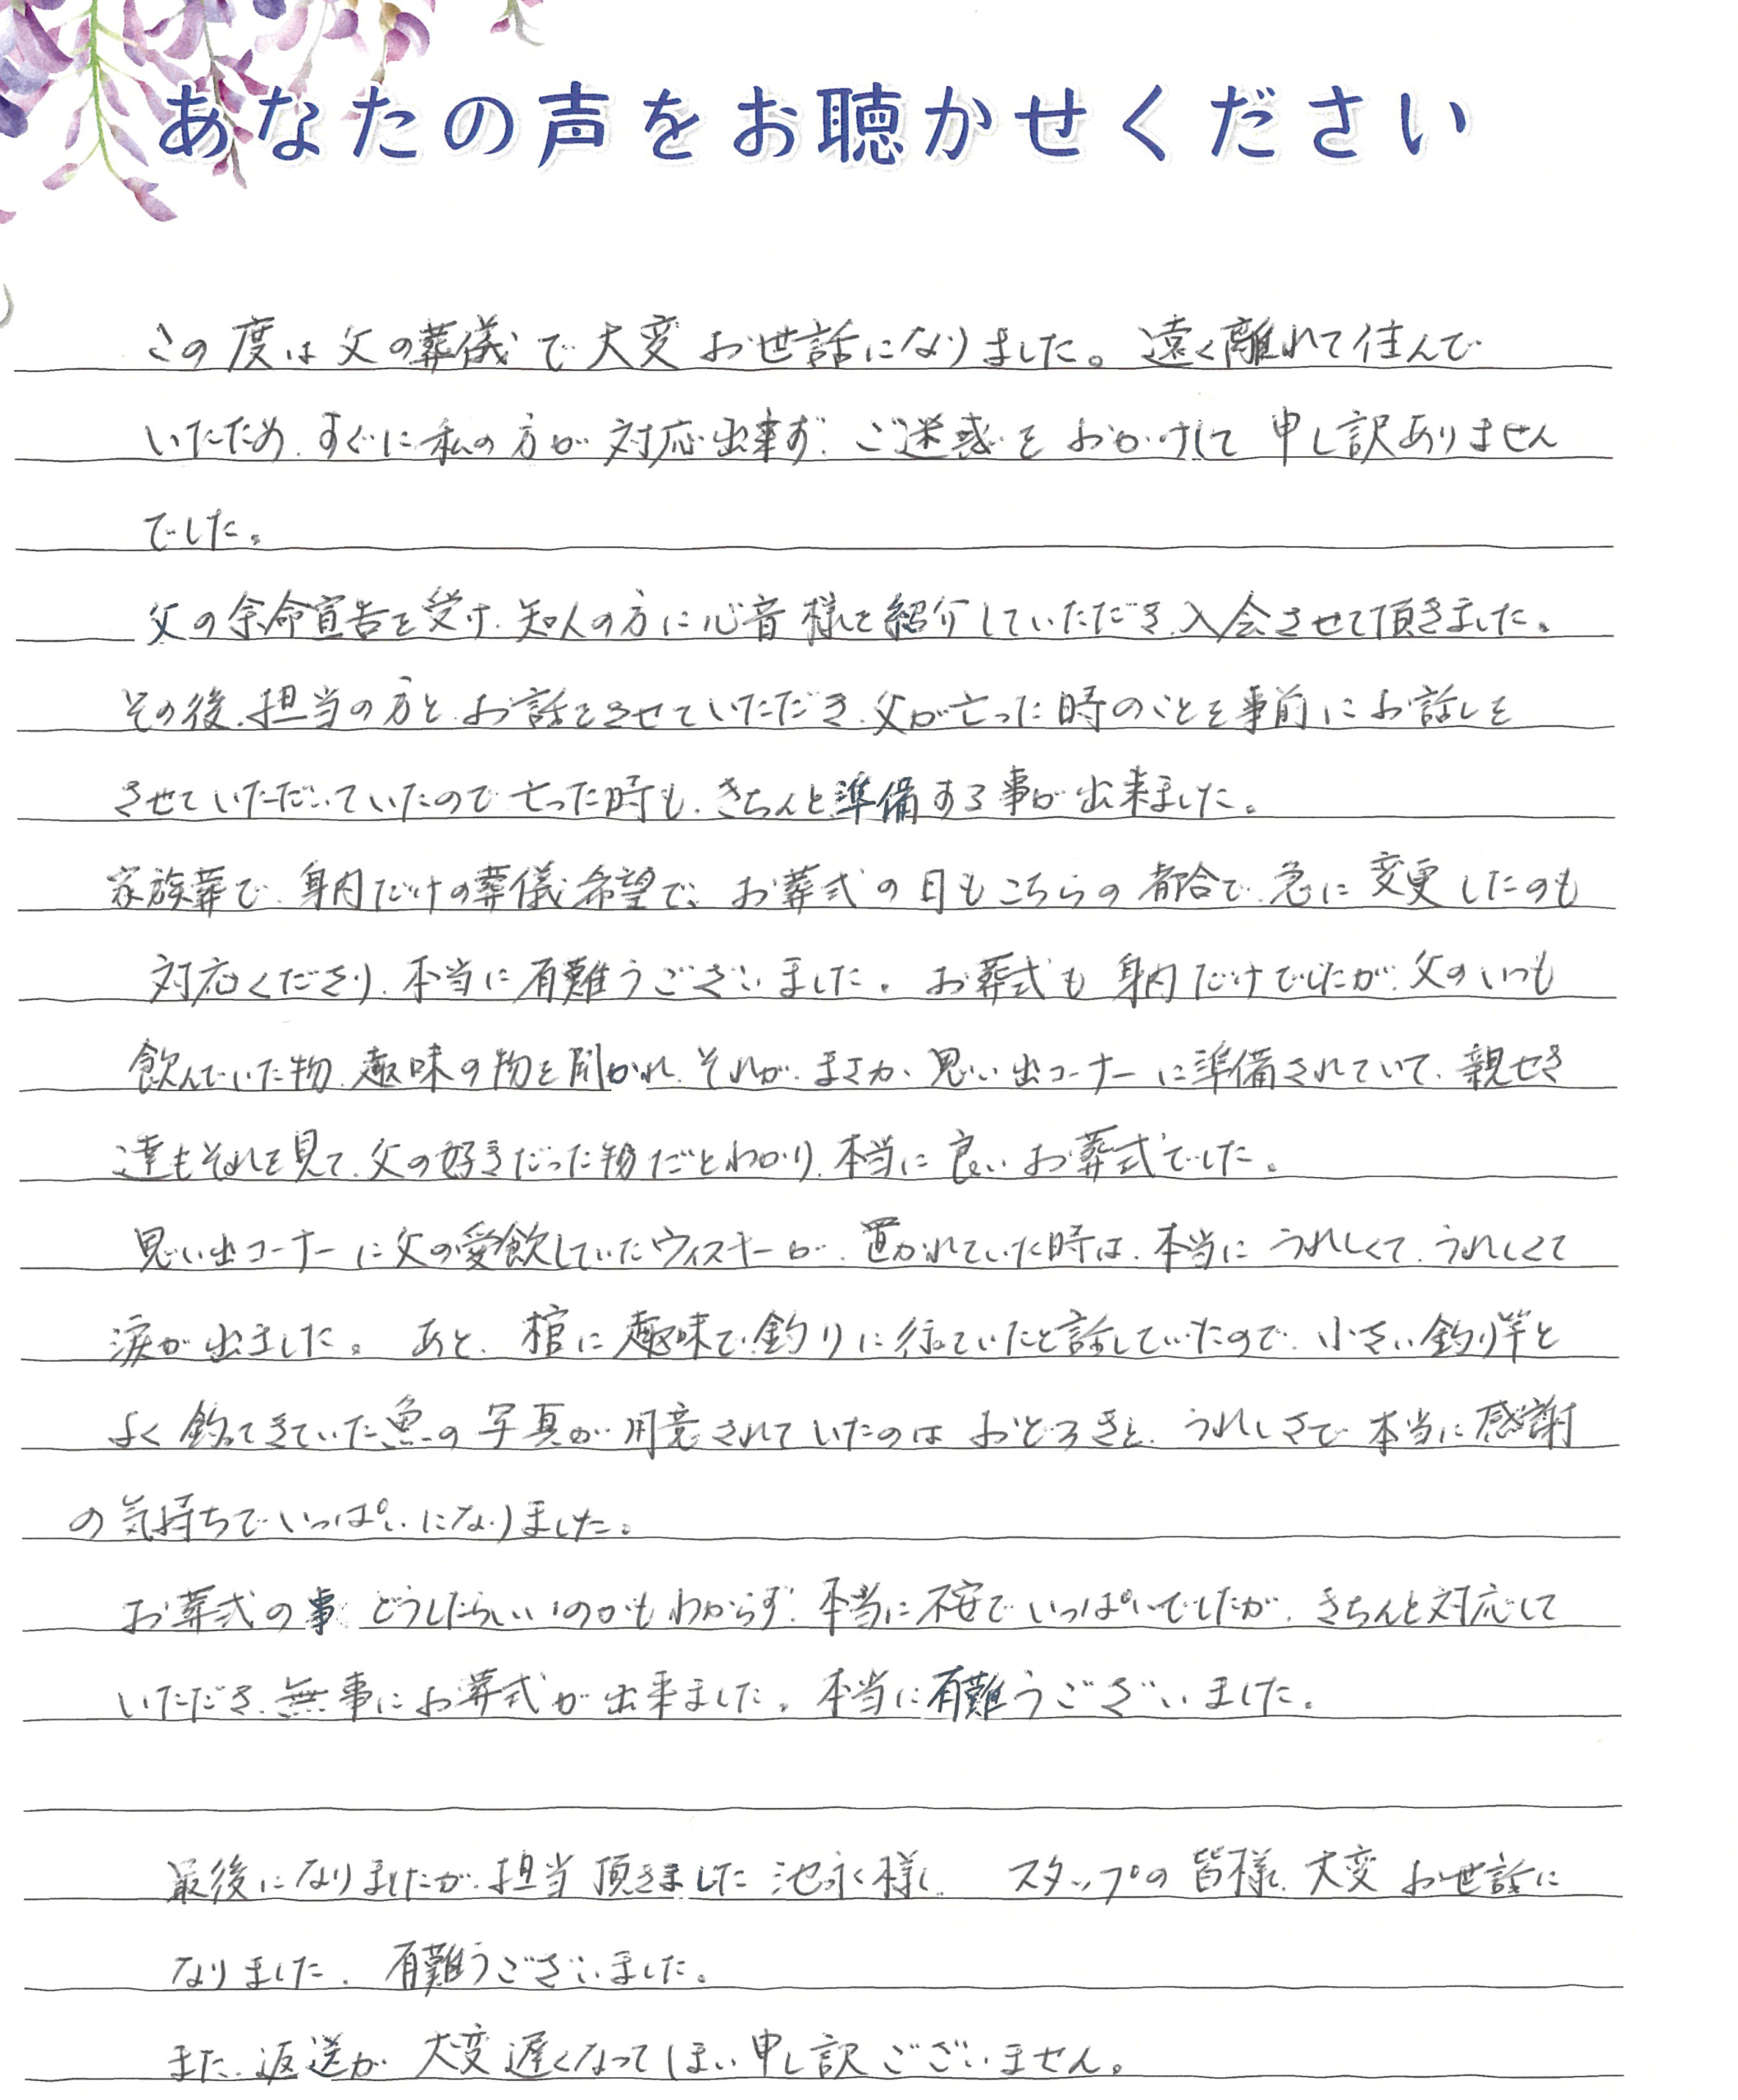 あなたの声をお聴かせください
この度は父の葬儀で大変お世話になりました。遠く離れて住んで
いたため、すぐに私の方が対応出来ず、ご迷惑をおかけして申し訳ありません
でした。
父の余命宣告を受け、知人の方に心音様を紹介していただき、入会させて頂きました。
その後、担当の方と、お話をさせていただき、父が亡った時のことを事前にお話しを
させていただいていたので亡った時も、きちんと準備する事が出来ました。
家族葬で、身内だけの葬儀希望で、お葬式の日もこちらの都合で、急に変更したのも
対応くださり、本当に有難うございました。お葬式も身内だけでしたが、父のいつも
飲んでいた物、趣味の物を聞かれ、それが、まさか、思い出コーナーに準備されていて、親せき
達もそれを見て、父の好きだった物だとわかり、本当に良いお葬式でした。
思い出コーナーに父の愛飲していたウィスキーが、置かれていた時は、本当にうれしくて、うれしくて
涙が出ました。あと、棺に趣味で釣りに行っていたと話していたので、小さい釣り竿と
よく釣ってきていた魚の写真が用意されていたのはおどろきと、うれしさで本当に感謝
の気持ちでいっぱいになりました。
お葬式の事、どうしたらいいのかもわからず、本当に不安でいっぱいでしたが、きちんと対応して
いただき、無事にお葬式が出来ました。本当に有難うございました。
最後になりましたが、担当頂きました池永様、スタップの皆様、大変お世話に
なりました。有難うございました。
また、返送が大変遅くなってしまい申し訳ございません。